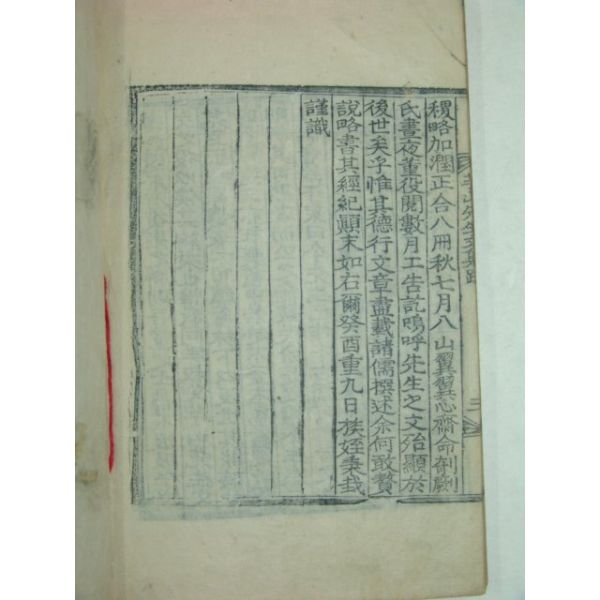 稷略加潤正合八冊秋七月入山翼翼心齋命剞劂
氏晝夜董役閱數月工告訖嗚呼先生之文殆顯於
後世矣乎惟其德行文章盡載諸儒撰述余何敢贅
說略書其經紀顚末如右爾癸酉重九日族姪秉
謹識
先生文集跋
二